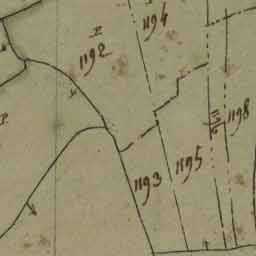 1194
1192
1198
1195
1193